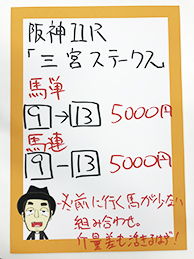 阪神11R
「三宮ステークス」
馬単
9→13 5000円
馬連
9-13 5000円
前に行く馬が少ない
組み合わせ。
斤量差も活きるはず!